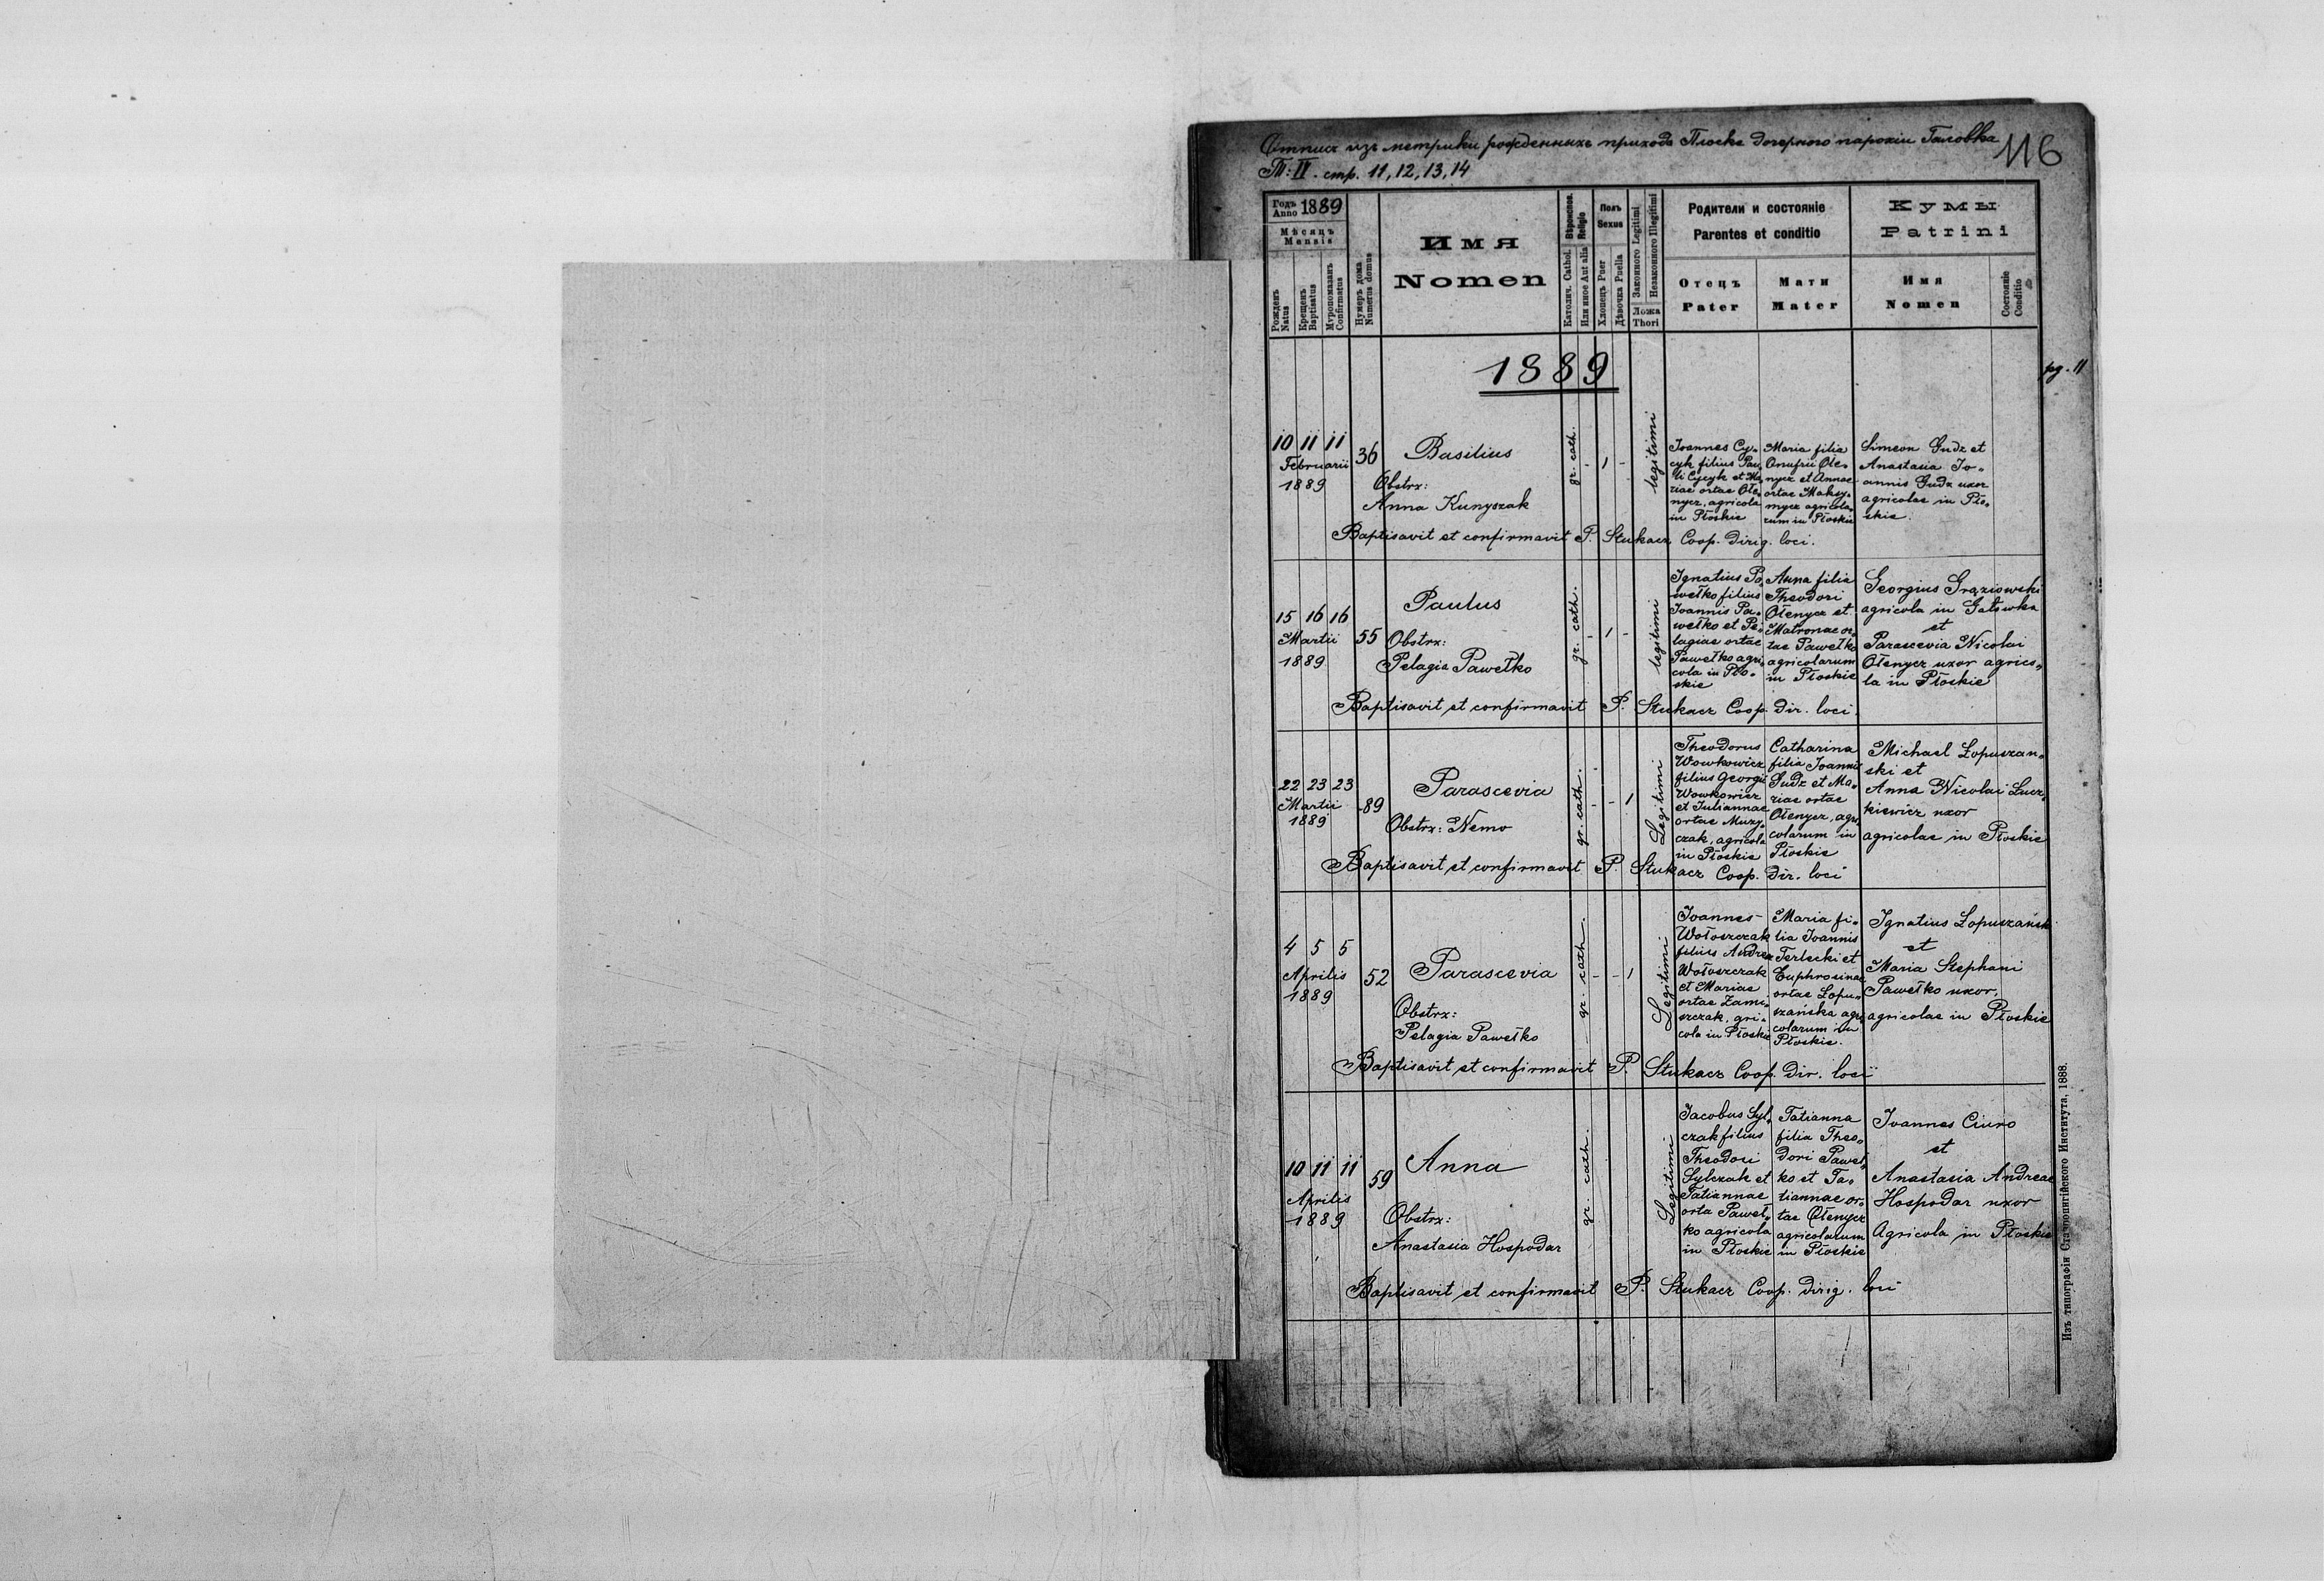 Отпись изъ метрики рожденныхъ прихода Плоске дочерного парохіи Галовка
116
Т: II. стр. 11, 12, 13, 14
Годъ Anno 1889
Мѣсяцъ
Mensis
Рожденъ Natus
Крещенъ Baptisatus
Мѵропомазанъ Confirmatus
Нумеръ дома Numerus domus
Имя
Nomen
Вѣроисповѣд. Religio
Католич. Cathol.
Или иное Aut alia
Полъ
Sexus
Хлопецъ Puer
Дѣвочка Puella
Законного Legitimi
Незаконного Illegitimi
Ложа
Thori
Родители и состояніе
Parentes et conditio
Отецъ
Pater
Мати
Mater
Кумы
Patrini
Имя
Nomen
Состояніе
Conditio
1889
pg. 11
10 11 11
Februarii
1889
36
Basilius
Obstrx:
Anna Kunyszak
gr. cath.
- 1 -
legitimi
Joannes Cy-
cyk filius Pau-
li Cycyk et Ma-
riae ortae Ołe-
nycz, agricola
in Płoskie
Maria filia
Onufrii Ołe-
nycz et Annae
ortae Maksy-
mycz agricola-
rum in Płoskie
Simeon Gudz et
Anastasia Jo-
annis Gudz uxor
agricolae in Pło-
skie.
Baptisavit et confirmavit P. Stukacz Coop. dirig. loci.
15 16 16
Martii
1889
55
Paulus
Obstrx:
Pelagia Pawełko
gr. cath.
- 1 -
legitimi
Ignatius Pa-
wełko filius
Joannis Pa-
wełko et Pe-
lagiae ortae
Pawełko agri-
cola in Pło-
skie
Anna filia
Theodori
Ołenycz et
Matronae or-
tae Pawełko
agricolarum
in Płoskie
Georgius Graziowski
agricola in Gałówka
et
Parascevia Nicolai
Ołenycz uxor agrico-
la in Płoskie
Baptisavit et confirmavit P. Stukacz Coop. dir. loci.
22 23 23
Martii
1889
89
Parascevia
Obstrx: Nemo
gr. cath.
- - 1
Legitimi
Theodorus
Wowkowicz
filius Georgii
Wowkowicz
et Juliannae
ortae Muzy-
czak, agricola
in Płoskie
Catharina
filia Joannis
Gudz et Ma-
riae ortae
Ołenycz, agri-
colarum in
Płoskie
Michael Łopuszan-
ski et
Anna Nicolai Lucz-
kiewicz uxor
agricolae in Płoskie
Baptisavit et confirmavit P. Stukacz Coop. dir. loci
4 5 5
Aprilis
1889
52
Parascevia
Obstrx:
Pelagia Pawełko
gr. cath.
- - 1
Legitimi
Joannes
Wołoszczak
filius Andreae
Wołoszczak
et Mariae
ortae Zami-
szczak, gri-
cola in Płoskie
Maria fi-
lia Joannis
Terlecki et
Euphrosinae
ortae Łopu-
szańska agri-
colarum in
Płoskie.
Ignatius Łopuszański
et
Maria Stephani
Pawełko uxor,
agricolae in Płoskie
Baptisavit et confirmavit P. Stukacz Coop. dir. loci
10 11 11
Aprilis
1889
59
Anna
Obstrx:
Anastasia Hospodar
gr. cath.
Legitimi
Jacobus Syl-
czak filius
Theodori
Sylczak et
Tatiannae
orta Paweł-
ko agricola
in Płoskie
Tatianna
filia Theo-
dori Paweł-
ko et Ta-
tiannae or-
tae Ołenycz
agricolarum
in Płoskie
Joannes Ciuro
et
Anastasia Andreae
Hospodar uxor
Agricola in Płoskie
Baptisavit et confirmavit P. Stukacz Coop. dirig. loci
Изъ типографіи Ставропигійского Института, 1888.